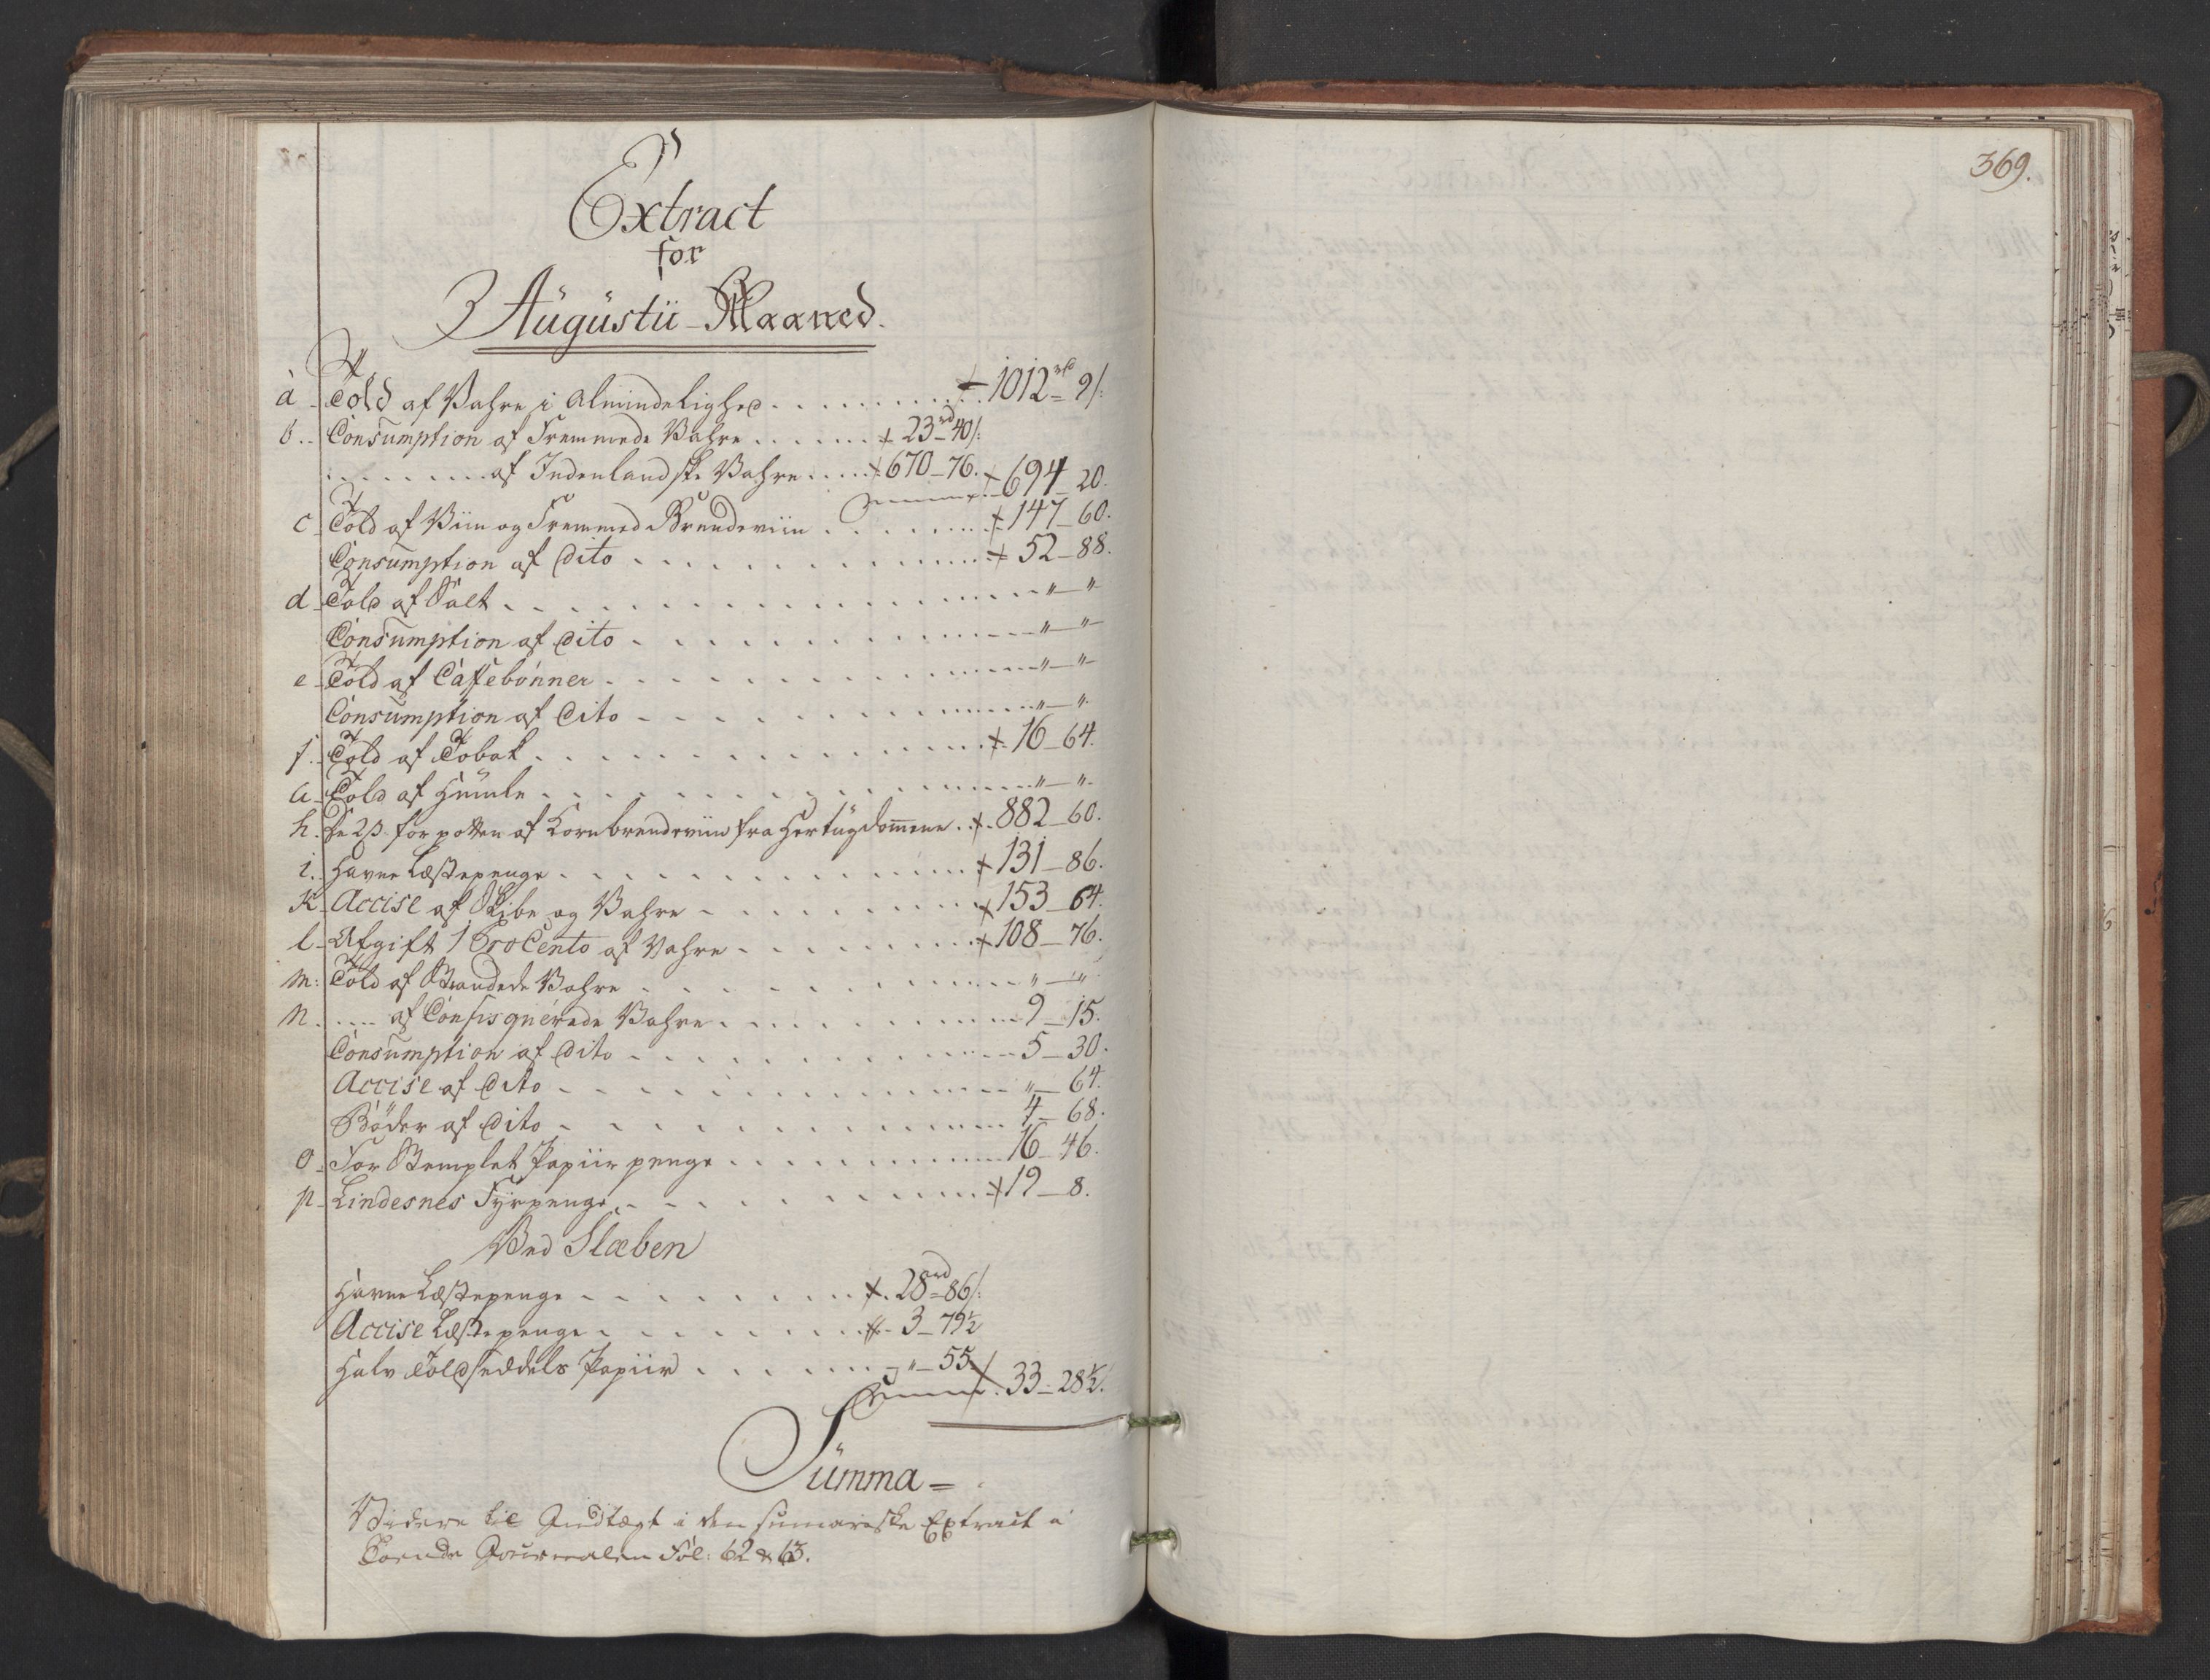 Extract
for
Augustii Maaned.
a Told af Vahre i Almindelighed 1012 rd 9 s:
b Consumption af Fremmede Vahre 23 rd 40 s:
af Indenlandske Vahre 670 – 76. 694 – 20.
c Told af Viin og Fremmed Brendeviin 147 – 60.
Consumption af Dito 52 – 88.
d Told af Salt " – "
Consumption af Dito " – "
e Told af Caffebønner " – "
Consumption af Dito " – "
f Told af Tobak 16 – 64.
G Told af Humle " – "
h. De 2 ß for potten af Kornbrendeviin fra Hertugdommene 882 – 60.
i. Havne Læstepenge 131 – 86.
K Accise af Skibe og Vahre 153 – 64.
l Afgift 1 ProCento af Vahre 108 – 76.
m: Told af Strandede Vahre " – "
n. af Confisquerede Vahre 9 – 15.
Consumption af Dito 5 – 30.
Accise af Dito " – 64.
Bøder af Dito 4 – 68.
o For Stemplet Papiir penge 16 – 46.
p Lindesnes Fyrpenge 19 – 8.
Ved Slæben
Havne Læstepenge 28 rd 86 s:
Accise Læstepenge 3 – 79½
Halv Toldseddels Papiir " – 55
33 – 28½.
Summa =
Videre til Indtægt i den sumariske Extract a
Journalen Fol: 62 & 63.
369.